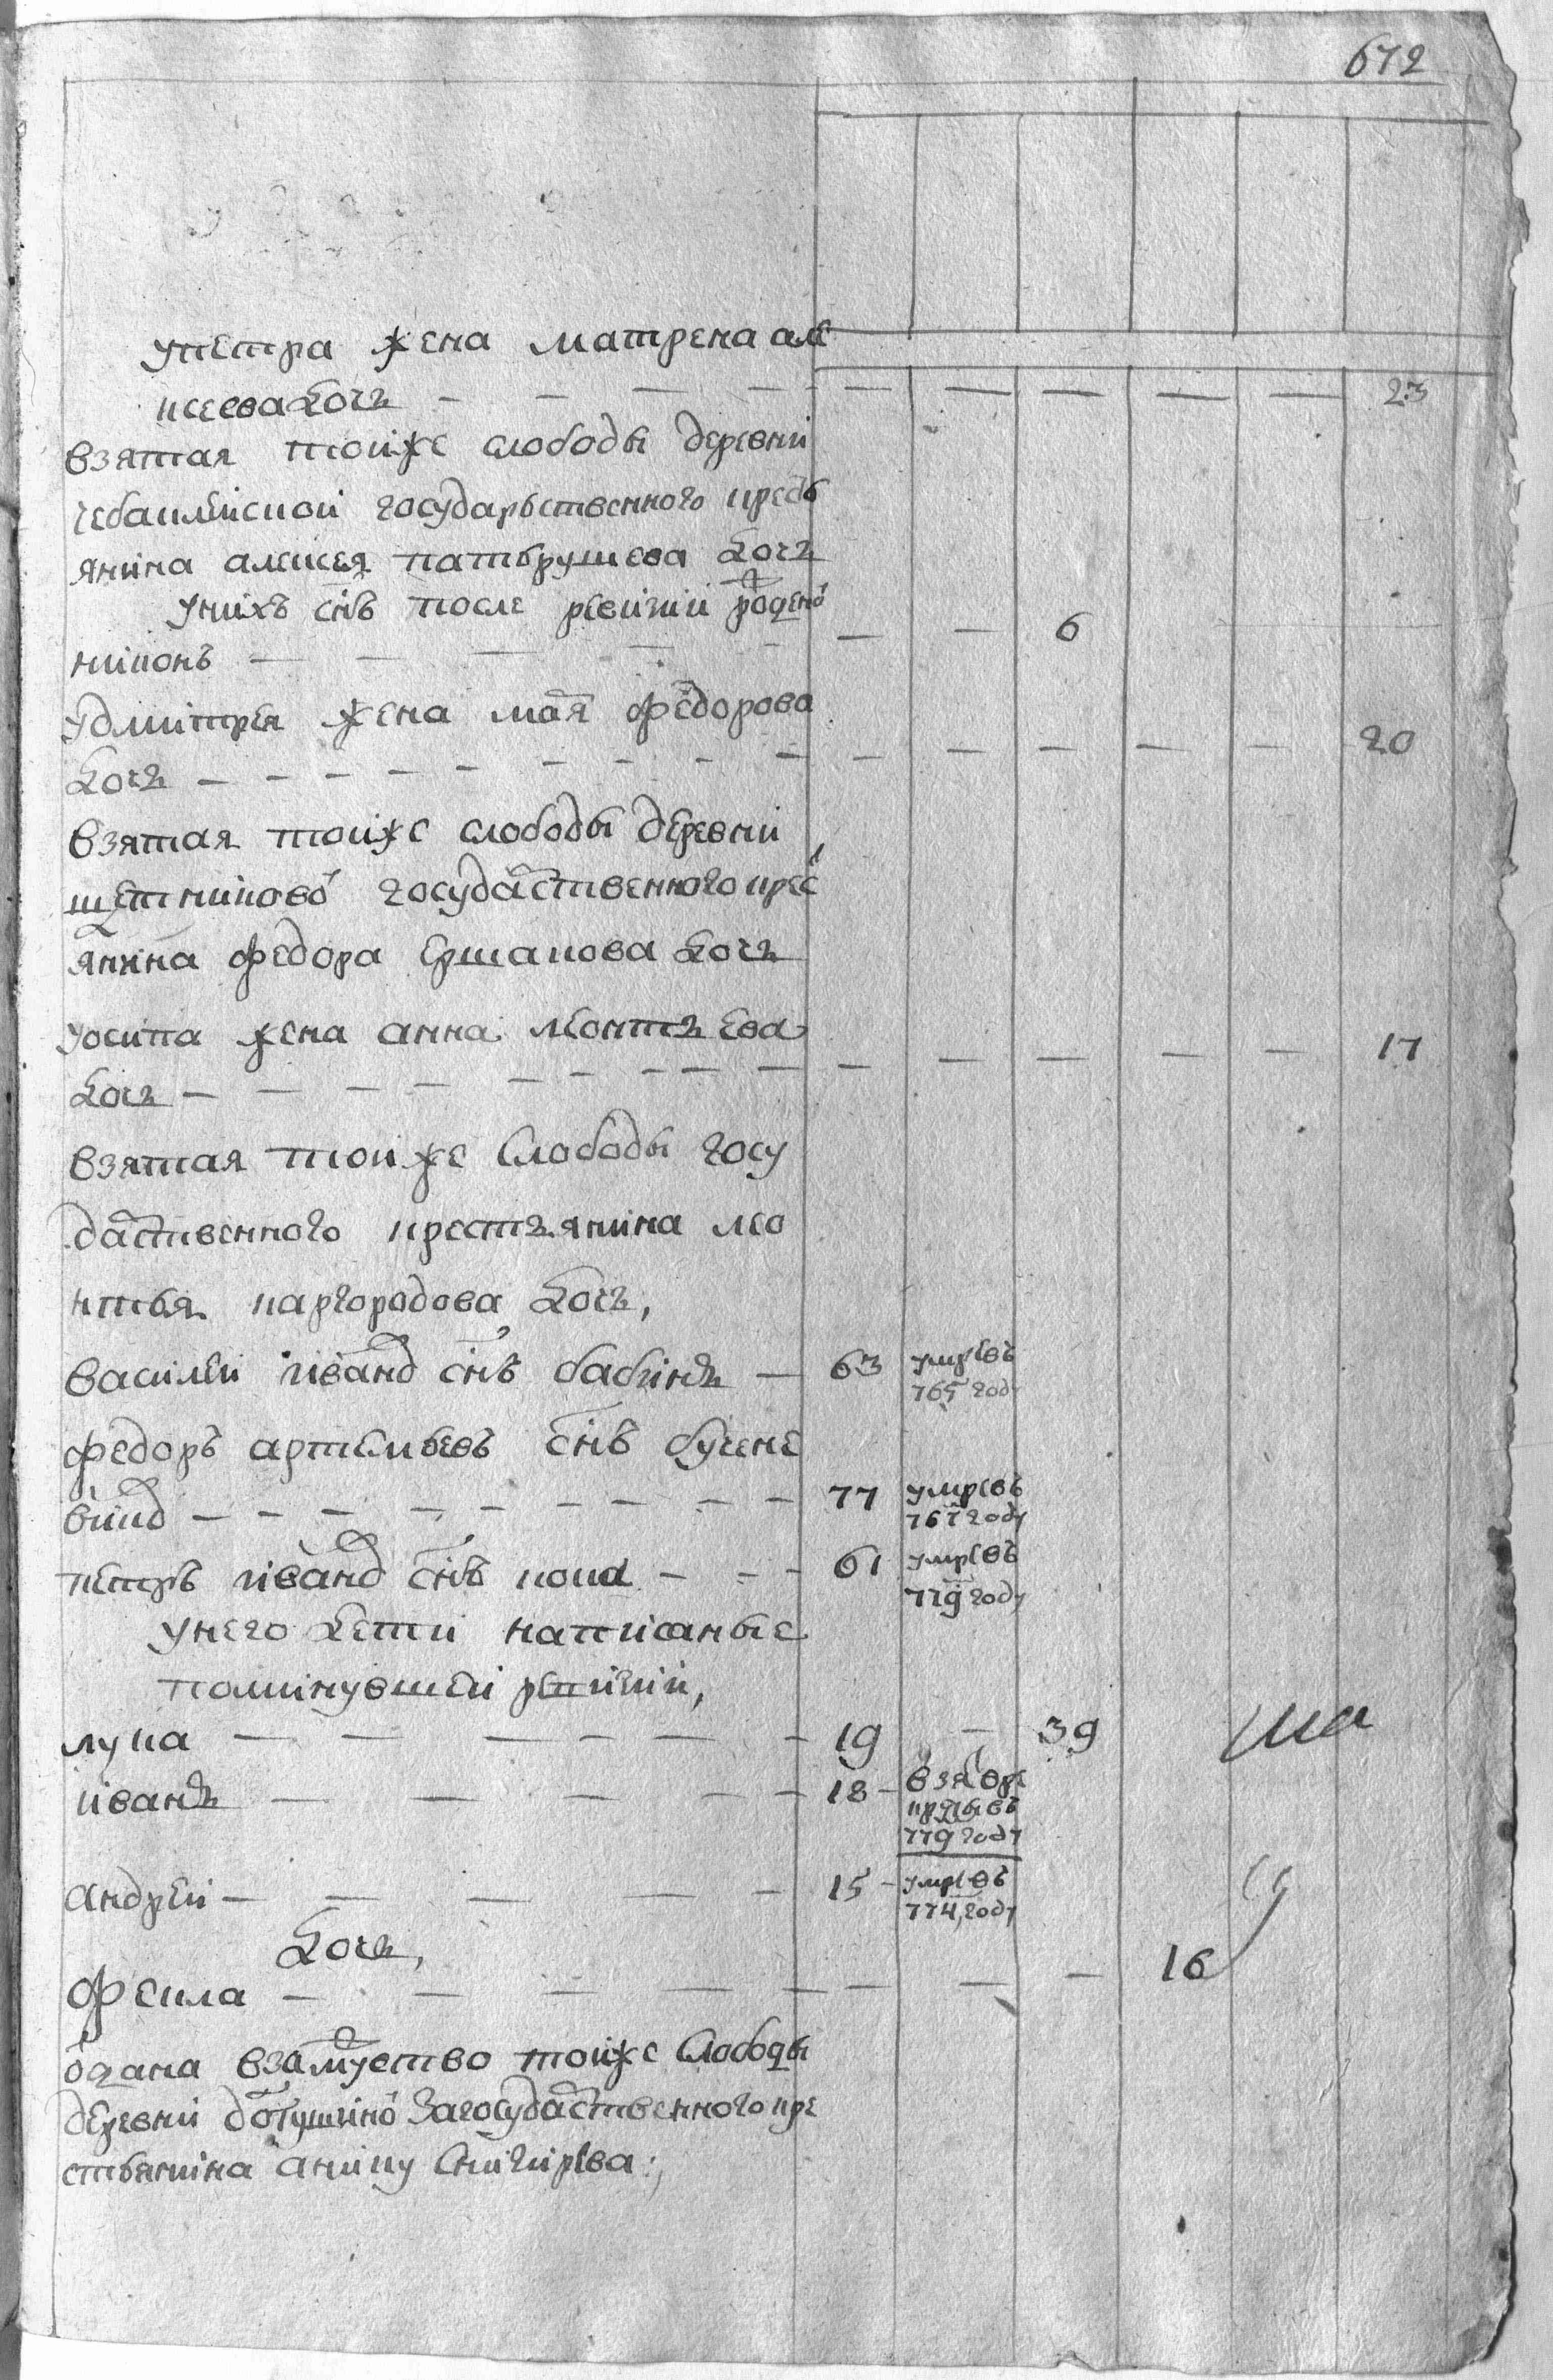 672
упетра жена матрена але
ксеева дочь — — — — — — — — — 23
взятая тойже слободы деревни
чебаклейской государьственного кресть
янина алексея патьрушева дочь
унихъ снъ после ревизии рожденои
никонъ — — — — — — — 6
удмитрея жена маря федорова
дочь — — — — — — — — — — — — — 20
взятая тойже слободы деревни
щетниково государственного крес
янина федора ершакова дочь
уосипа жена анна леонтьева
дочь — — — — — — — — — — — — — 17
взятая тойже слободы госу
дарственного крестьянина лео
нтья каргородова дочь,
василей иванов снъ бабинъ — 63 умре въ
765 году
федоръ артемьевъ снъ бучене
— — — — — — — — — 77 умре въ
767 году
петръ иванов снъ — — — 61 умре въ
779 году
унего дети написаные
поминувшей ревизии,
лука — — — — — — 19 — 39
иванъ — — — — — 18 — взят в ре
круты въ
779 году
андрей — — — — — 15 — умре въ
774 году
дочь,
фекла — — — — — — — — 16
одана взамужство тойже слободы
деревни загосударственного кре
стьянина аникиу снигирева :